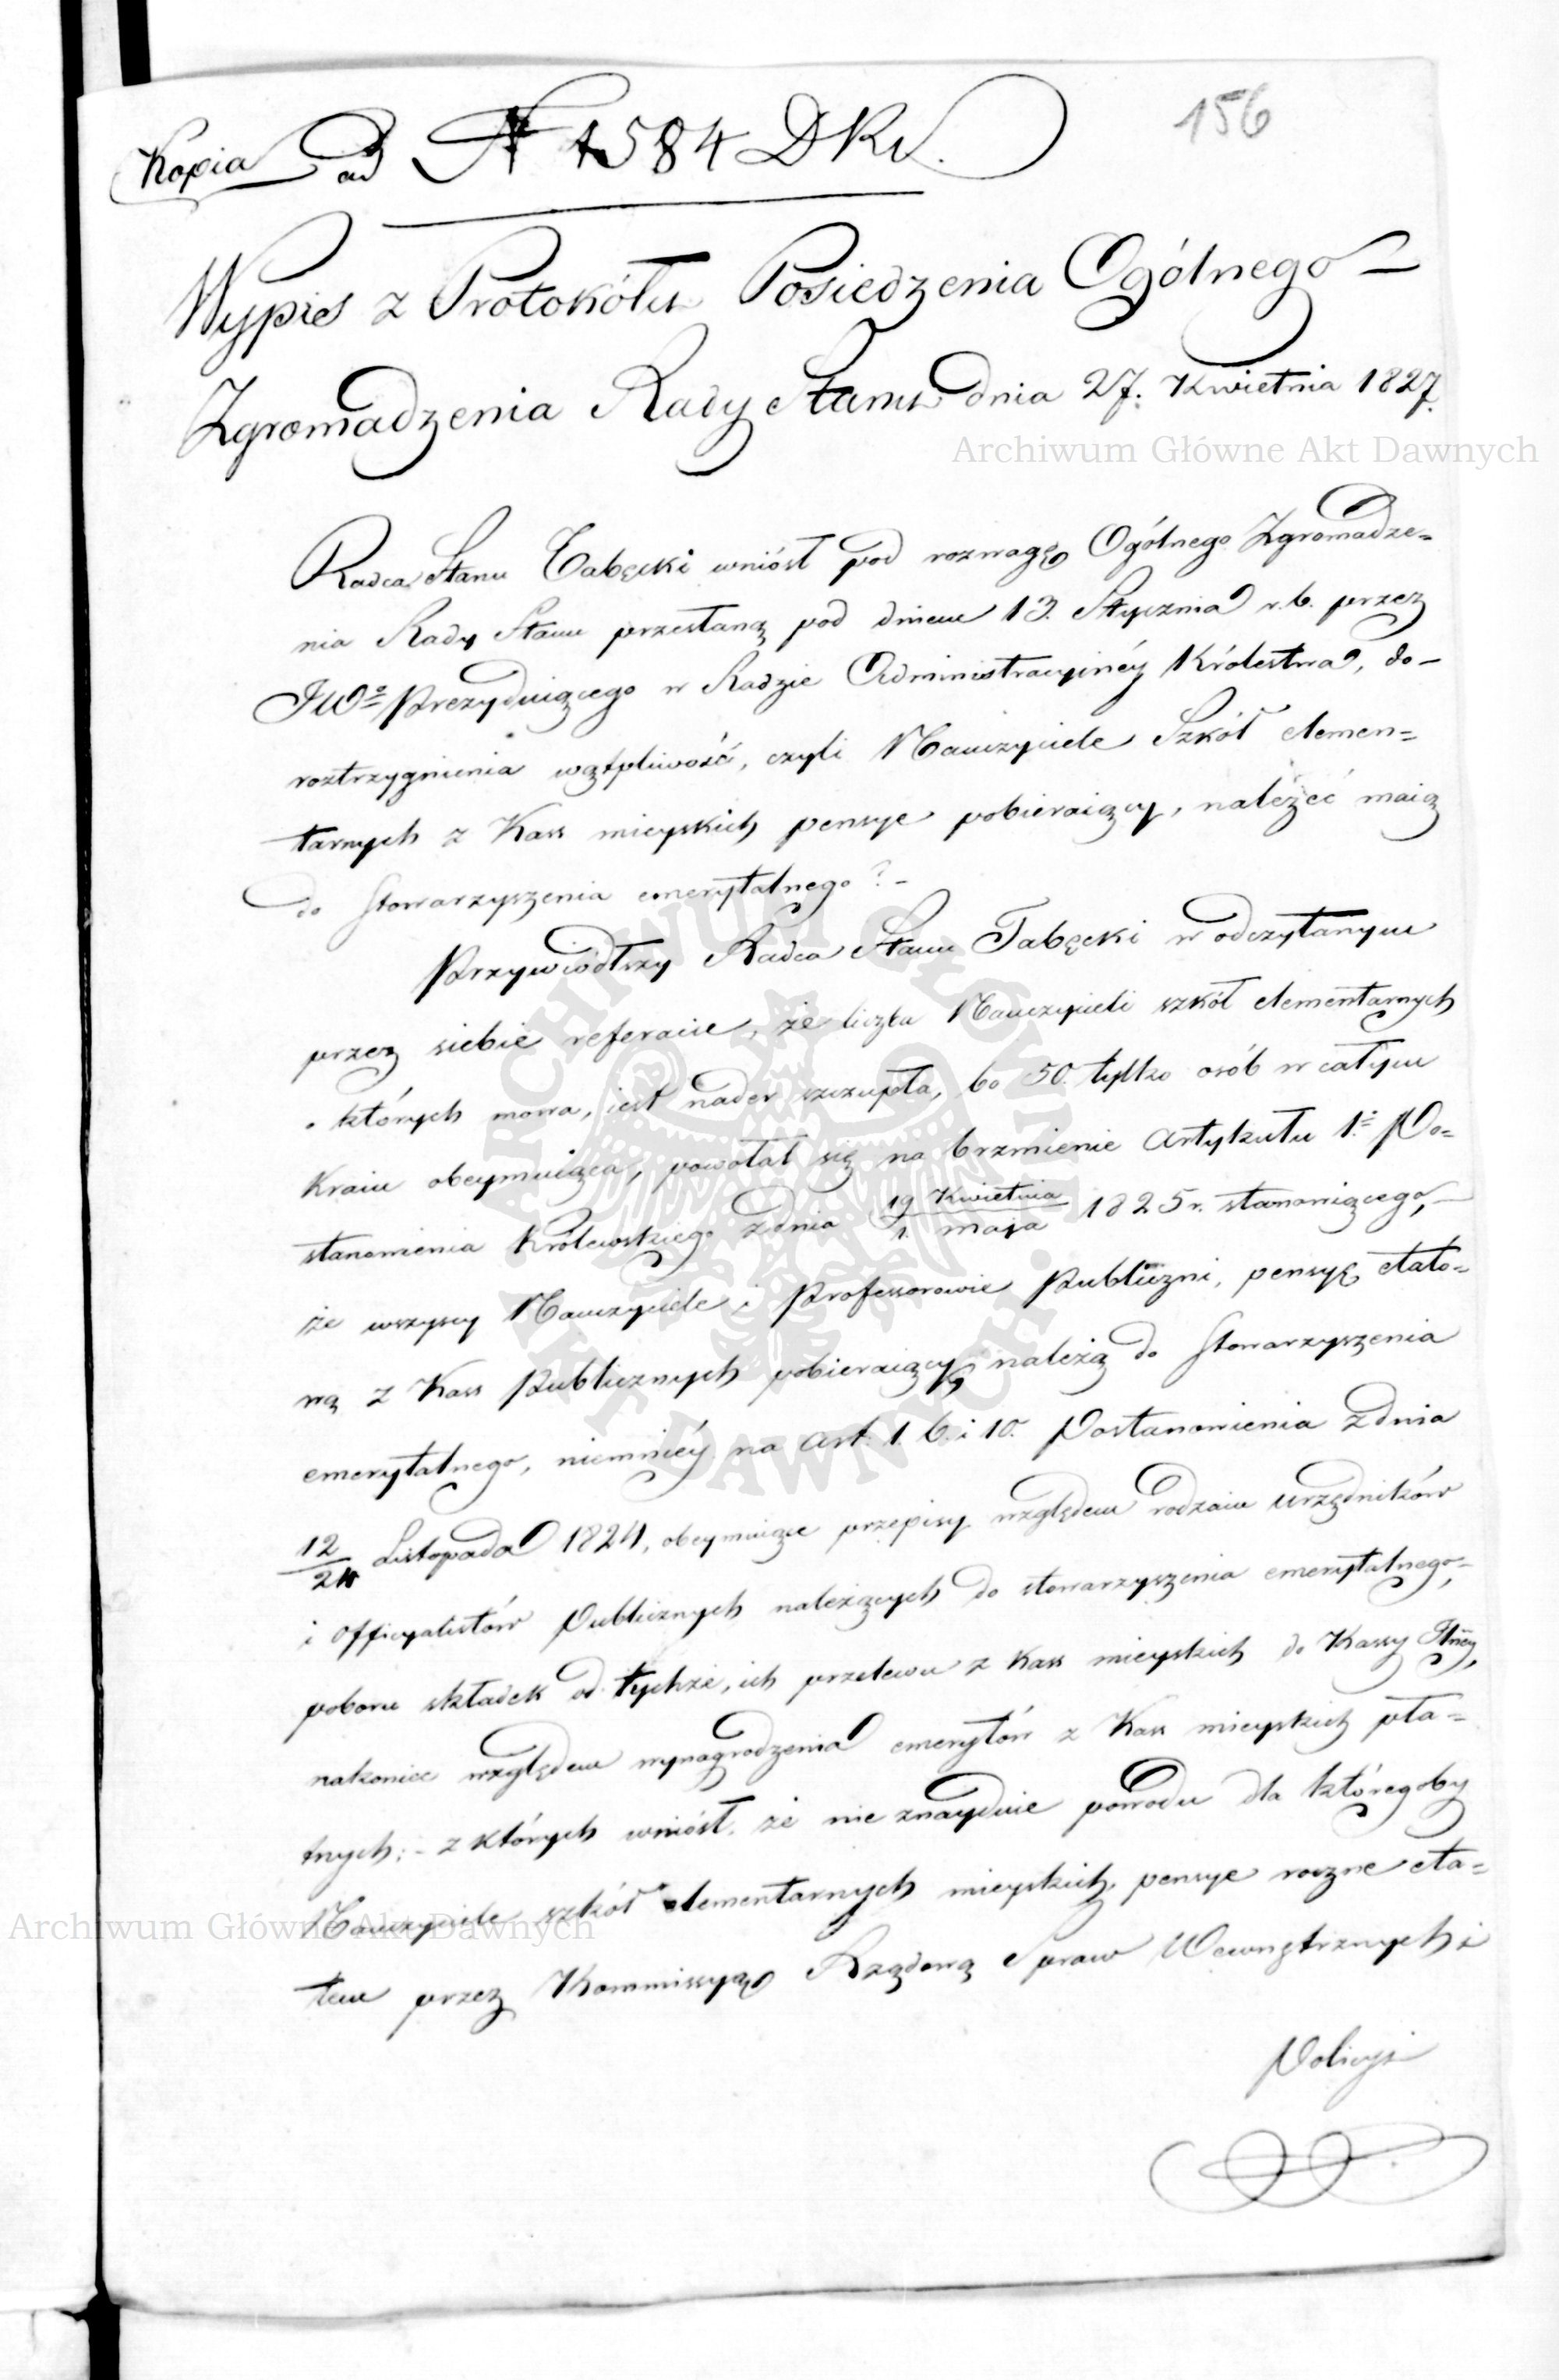 156
Kopia ad N 1584 DKr.
Wypis z Protokółu Posiedzenia Ogólnego
Zgromadzenia Rady Stanu dnia 27. Kwietnia 1827.
Archiwum Główne Akt Dawnych
Radca Stanu Tabęcki wniósł pod rozwagę Ogólnego Zgromadze=
nia Rady Stanu przesłaną pod dniem 13. Stycznia r. b. przez
JWo Prezyduiącego w Radzie Administracyinéy Królestwa, do-
roztrzygnienia wątpliwość, czyli Nauczyciele Szkół elemen=
tarnych z Kass mieyskich pensye pobieraiący, należéć maią
do Stowarzyszenia emerytalnego? -
Przywiódłszy Radca Stanu Tabęcki w odczytanym
przez siebie referacie, że liczba Nauczycieli szkół elementarnych
o których mowa, iest nader szczupła, bo 50. tylko osób w całym
Kraiu obeymuiąca, powołał się na brzmienie Artykułu 1. Po=
stanowienia Królewskiego z dnia 19 Kwietnia / 1. Maja 1825 r. stanowiącego, -
że wszyscy Nauczyciele i Professorowie Publiczni, pensyę etato=
wą z Kass Publicznych pobieraiący należą do Stowarzyszenia
emerytalnego, niemniéy na Art. 1. 6. i 10. Postanowienia z dnia
12/24 Listopada 1824, obeymuiące przepisy względem rodzaiu Urzędników
i Officyalistów Publicznych należących do stowarzyszenia emerytalnego, -
poboru składek od tychże, ich przelewu z Kass mieyskich do Kassy Głnéy,
nakoniec względem wynagrodzenia emerytów z Kass mieyskich pła=
tnych; - z których wniósł, że nie znayduie powodu dla któregoby
Nauczyciele szkół elementarnych mieyskich, pensye roczne eta=
tem przez Kommissyą Rządową Spraw Wewnętrznych i
Archiwum Główne Akt Dawnych
Policyi
ARCHIWUM GŁÓWNE AKT DAWNYCH